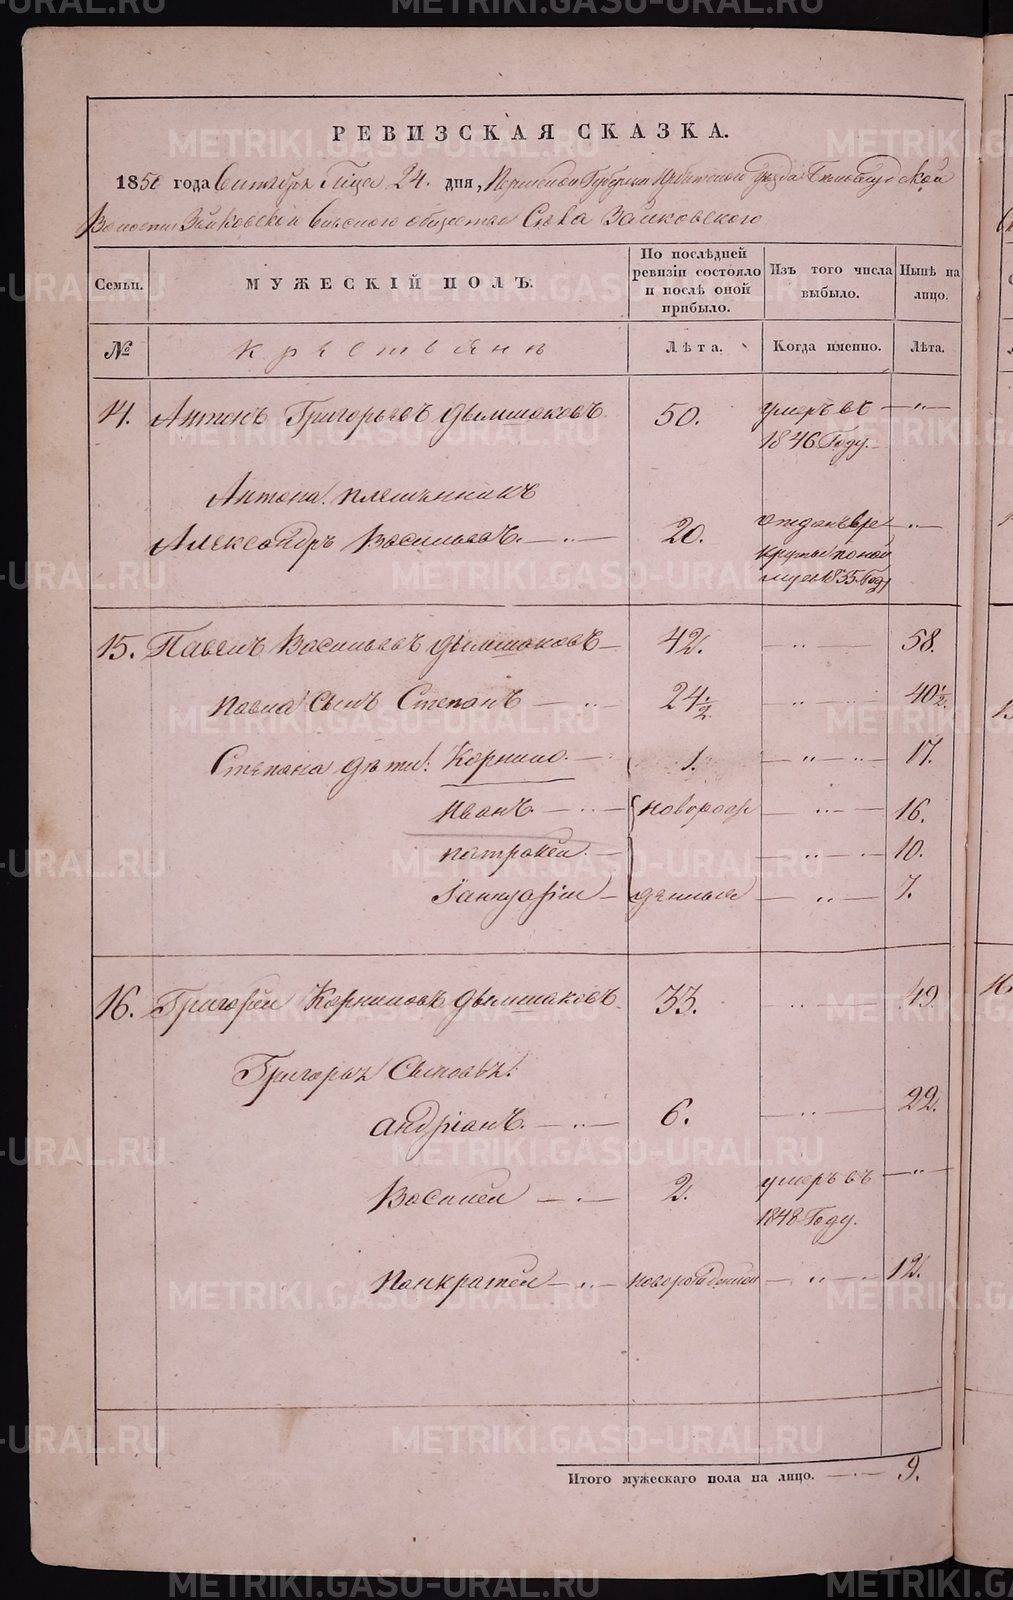 РЕВИЗСКАЯ СКАЗКА.
1850 года Сентября Мѣсяца 24. дня, Пермской Губернии Ирбитского Уѣзда
Волости Зайковскаго Сельского общества Села Зайковского
Семьи.
МУЖЕСКІЙ ПОЛЪ.
По послѣдней ревизіи состояло и послѣ оной прибыло.
Изъ того числа выбыло.
Нынѣ на лицо.
№
Крестьянъ
Лѣта.
Когда именно.
Лѣта.
14. Антонъ Григорьевъ Дымшаковъ. 50. умеръ въ — „ —
1846 Году.
Антона племянникъ
Александръ Васильевъ. — „ — 20. отданъ въ ре- — „ —
круты
1835 Году
15. Павелъ Васильевъ Дымшаковъ — 42. — „ — 58.
Павла Сынъ Степанъ — „ 24 1/2. — „ — 40 1/2.
Степана дѣти: Корнило. — 1. — „ — 17.
Иванъ. — „ — новорож — „ — 16.
Патракей. — — „ — 10.
Іаннуарій — денные — „ — 7.
16. Григорей Корниловъ Дымшаковъ. 33. „ 49.
Григорья Сыновья:
Андріанъ. — „ — 6. — „ — 22.
Василей — „ — 2. умеръ въ — „ —
1848 Году.
Панкратей — „ — новорожденной — „ — 12.
Итого мужескаго пола на лицо. — „ — 9.
METRIKI.GASO-URAL.RU